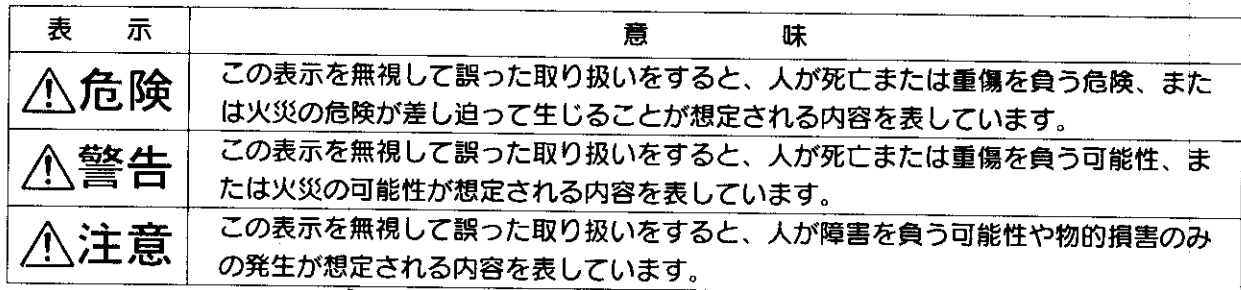 表 示 意 味
⚠危険 この表示を無視して誤った取り扱いをすると、人が死亡または重傷を負う危険、また
は火災の危険が差し迫って生じることが想定される内容を表しています。
⚠警告 この表示を無視して誤った取り扱いをすると、人が死亡または重傷を負う可能性、ま
たは火災の可能性が想定される内容を表しています。
⚠注意 この表示を無視して誤った取り扱いをすると、人が障害を負う可能性や物的損害のみ
の発生が想定される内容を表しています。